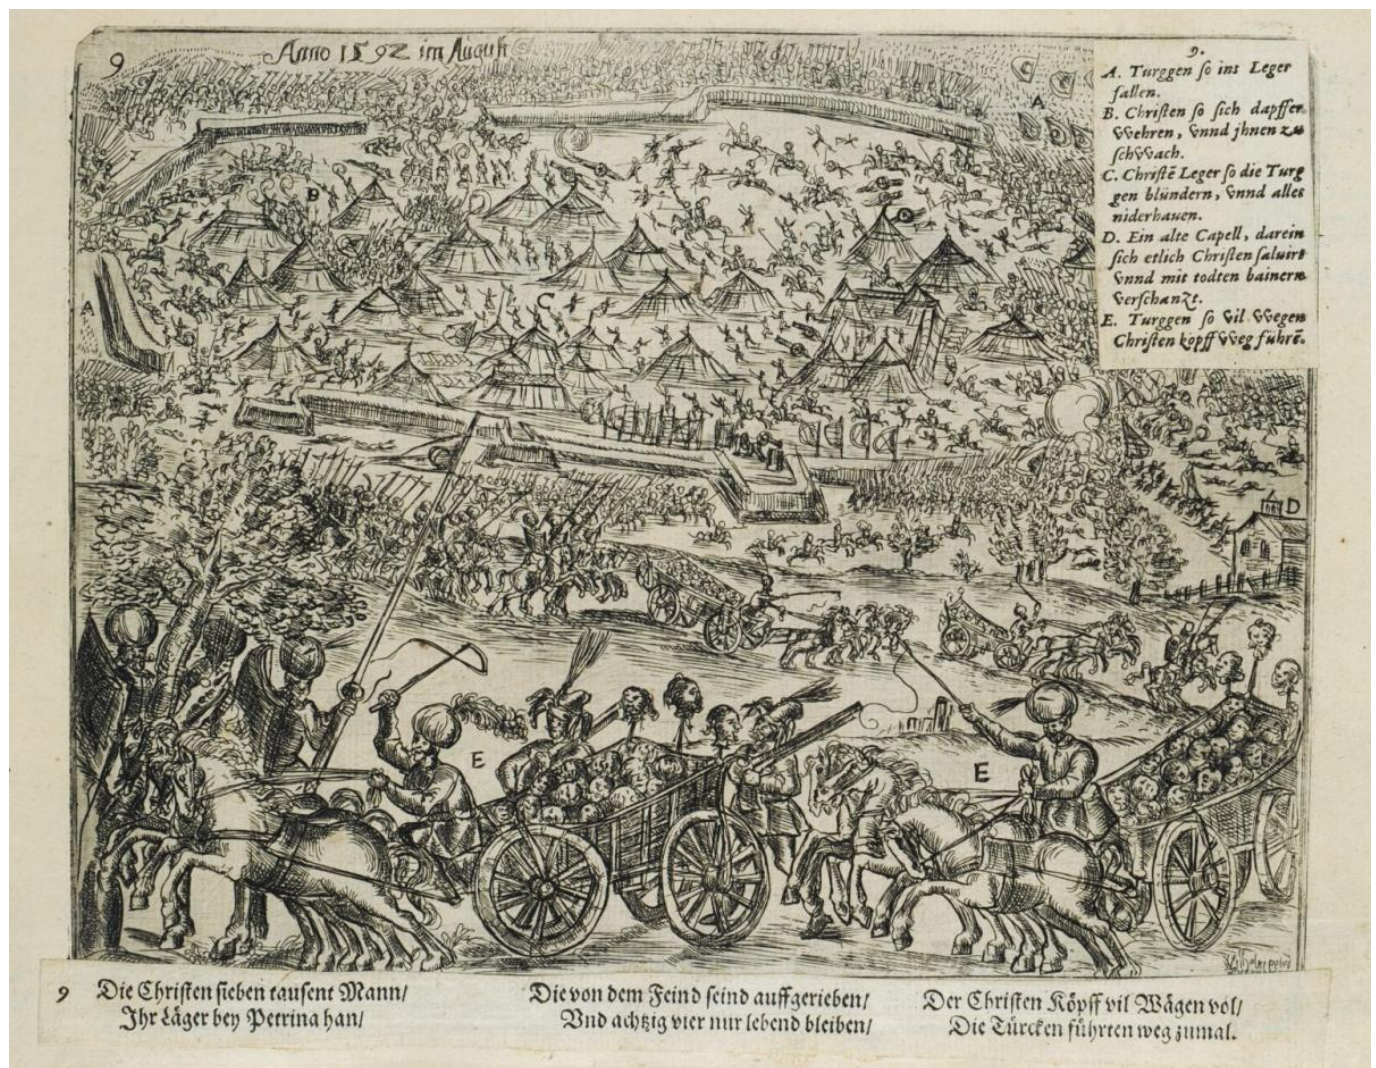 9
Anno 1592 im August
9.
A. Turggen so ins Leger
fallen.
B. Christen so sich dapffer
wehren, vnnd jhnen zu
schwach.
C. Christẽ Leger so die Turg
gen blündern, vnnd alles
niderhauen.
D. Ein alte Capell, darein
sich etlich Christen saluirt
vnnd mit todten bainern
verschanzt.
E. Turggen so vil wegen
Christen kopff weg führẽ.
A
B
A
C
D
E
E
9 Die Christen sieben tausent Mann/
Ihr Läger bey Petrina han/
Die von dem Feind seind auffgerieben/
Vnd achtzig vier nur lebend bleiben/
Der Christen Köpff vil Wägen vol/
Die Türcken führten weg zumal.